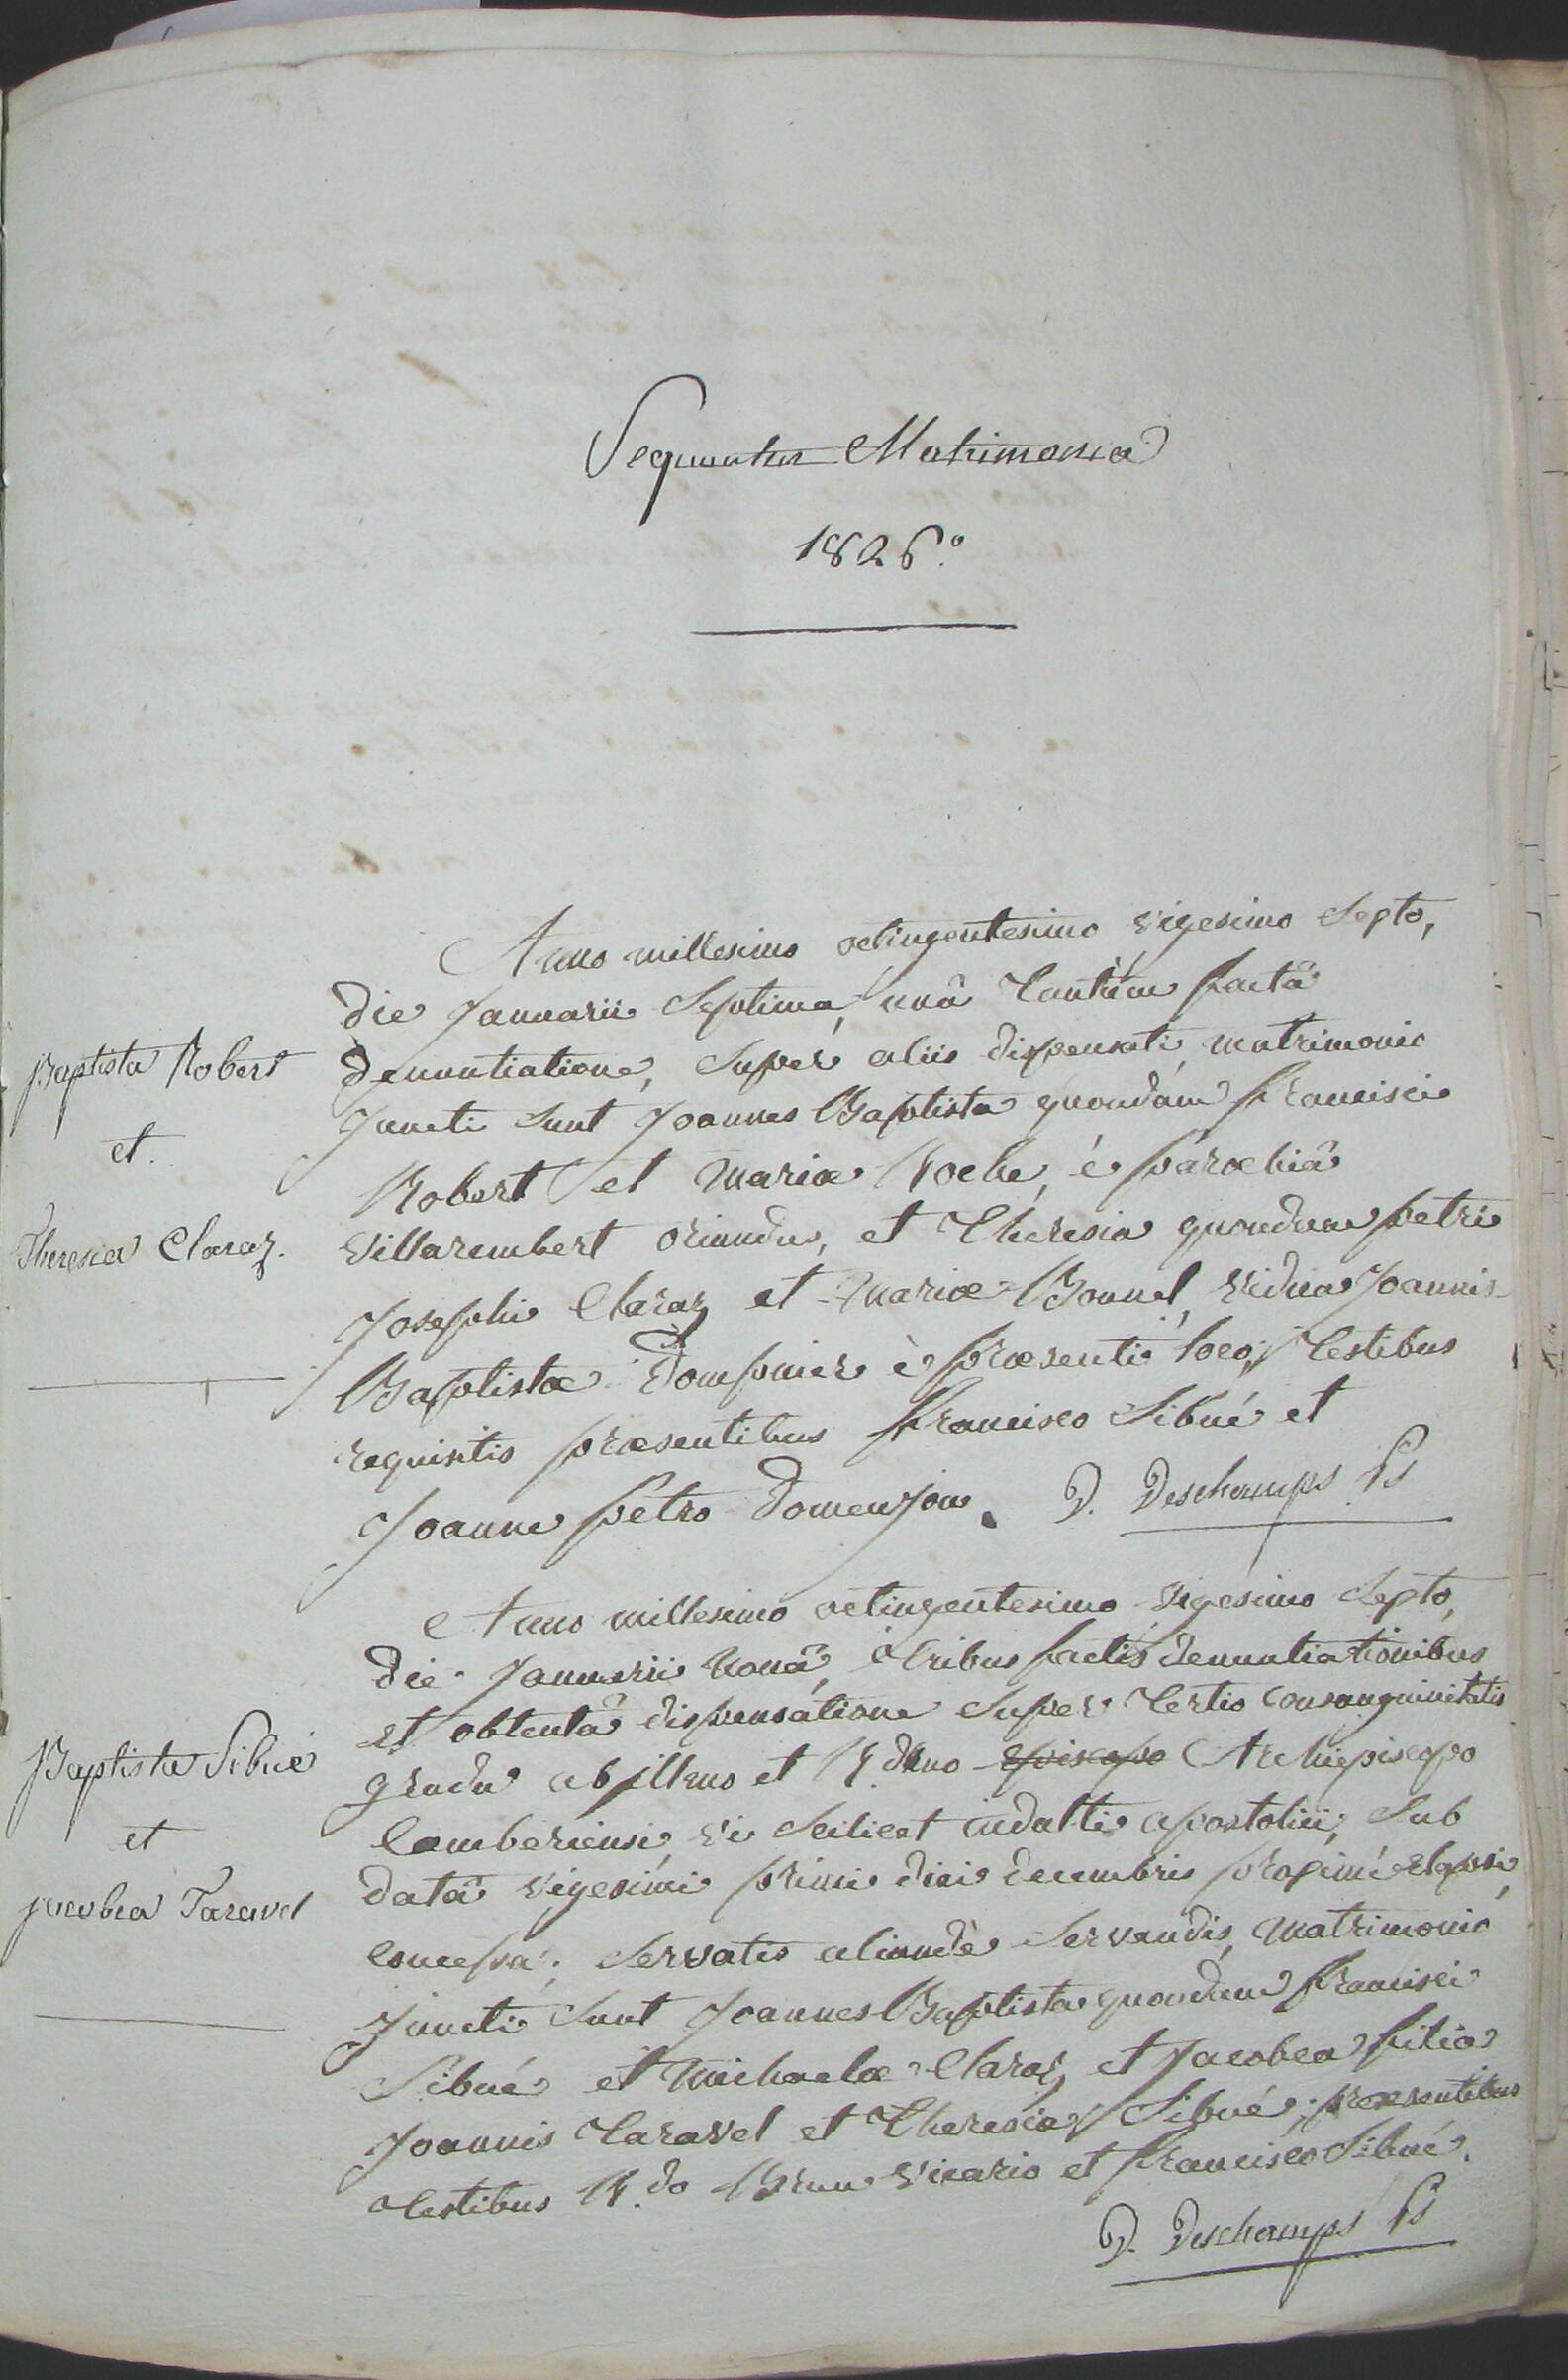 Sequuntur Matrimonia
1826.°
Anno millesimo octingentesimo vigesimo septo,
die Januarii septima, unâ tantùm factâ
Baptista Robert
denuntiatione, super aliis dispensati, matrimonio
juncti sunt Joannes Baptista quondam francisci
et.
Robert et Mariæ Roche, è parochiâ
Theresia Claraz.
Villarembert oriundus, et Theresia quondam petri
Josephi Claraz et Mariæ Bonnel, vidua Joannis
Baptistæ Dompnier è præsenti loco; testibus
requisitis præsentibus francisco Sibué et
Joanne petro Domenjon. D. Deschamps Ps
Anno millesimo octingentesimo vigesimo septo,
die Januarii nonâ, tribus factis denuntiationibus
et obtentâ dispensatione super tertio consanguinitatis
Baptista Sibué
gradu ab illmo et R.dmo episcopo Archiepiscopo
et
Camberiensi, vi scilicet indulti apostolici, sub
Jacobea Taravel
datâ vigesimi primi diei decembris proximè elapsi,
concessâ; servatis aliundè servandis, matrimonio
juncti sunt Joannes Baptista quondam francisci
Sibué et Michaelæ Claraz et Jacobea filia
Joannis Taravel et Theresiæ Sibué; præsentibus
testibus R.do Brun vicario et francisco Sibué.
D. Deschamps Ps